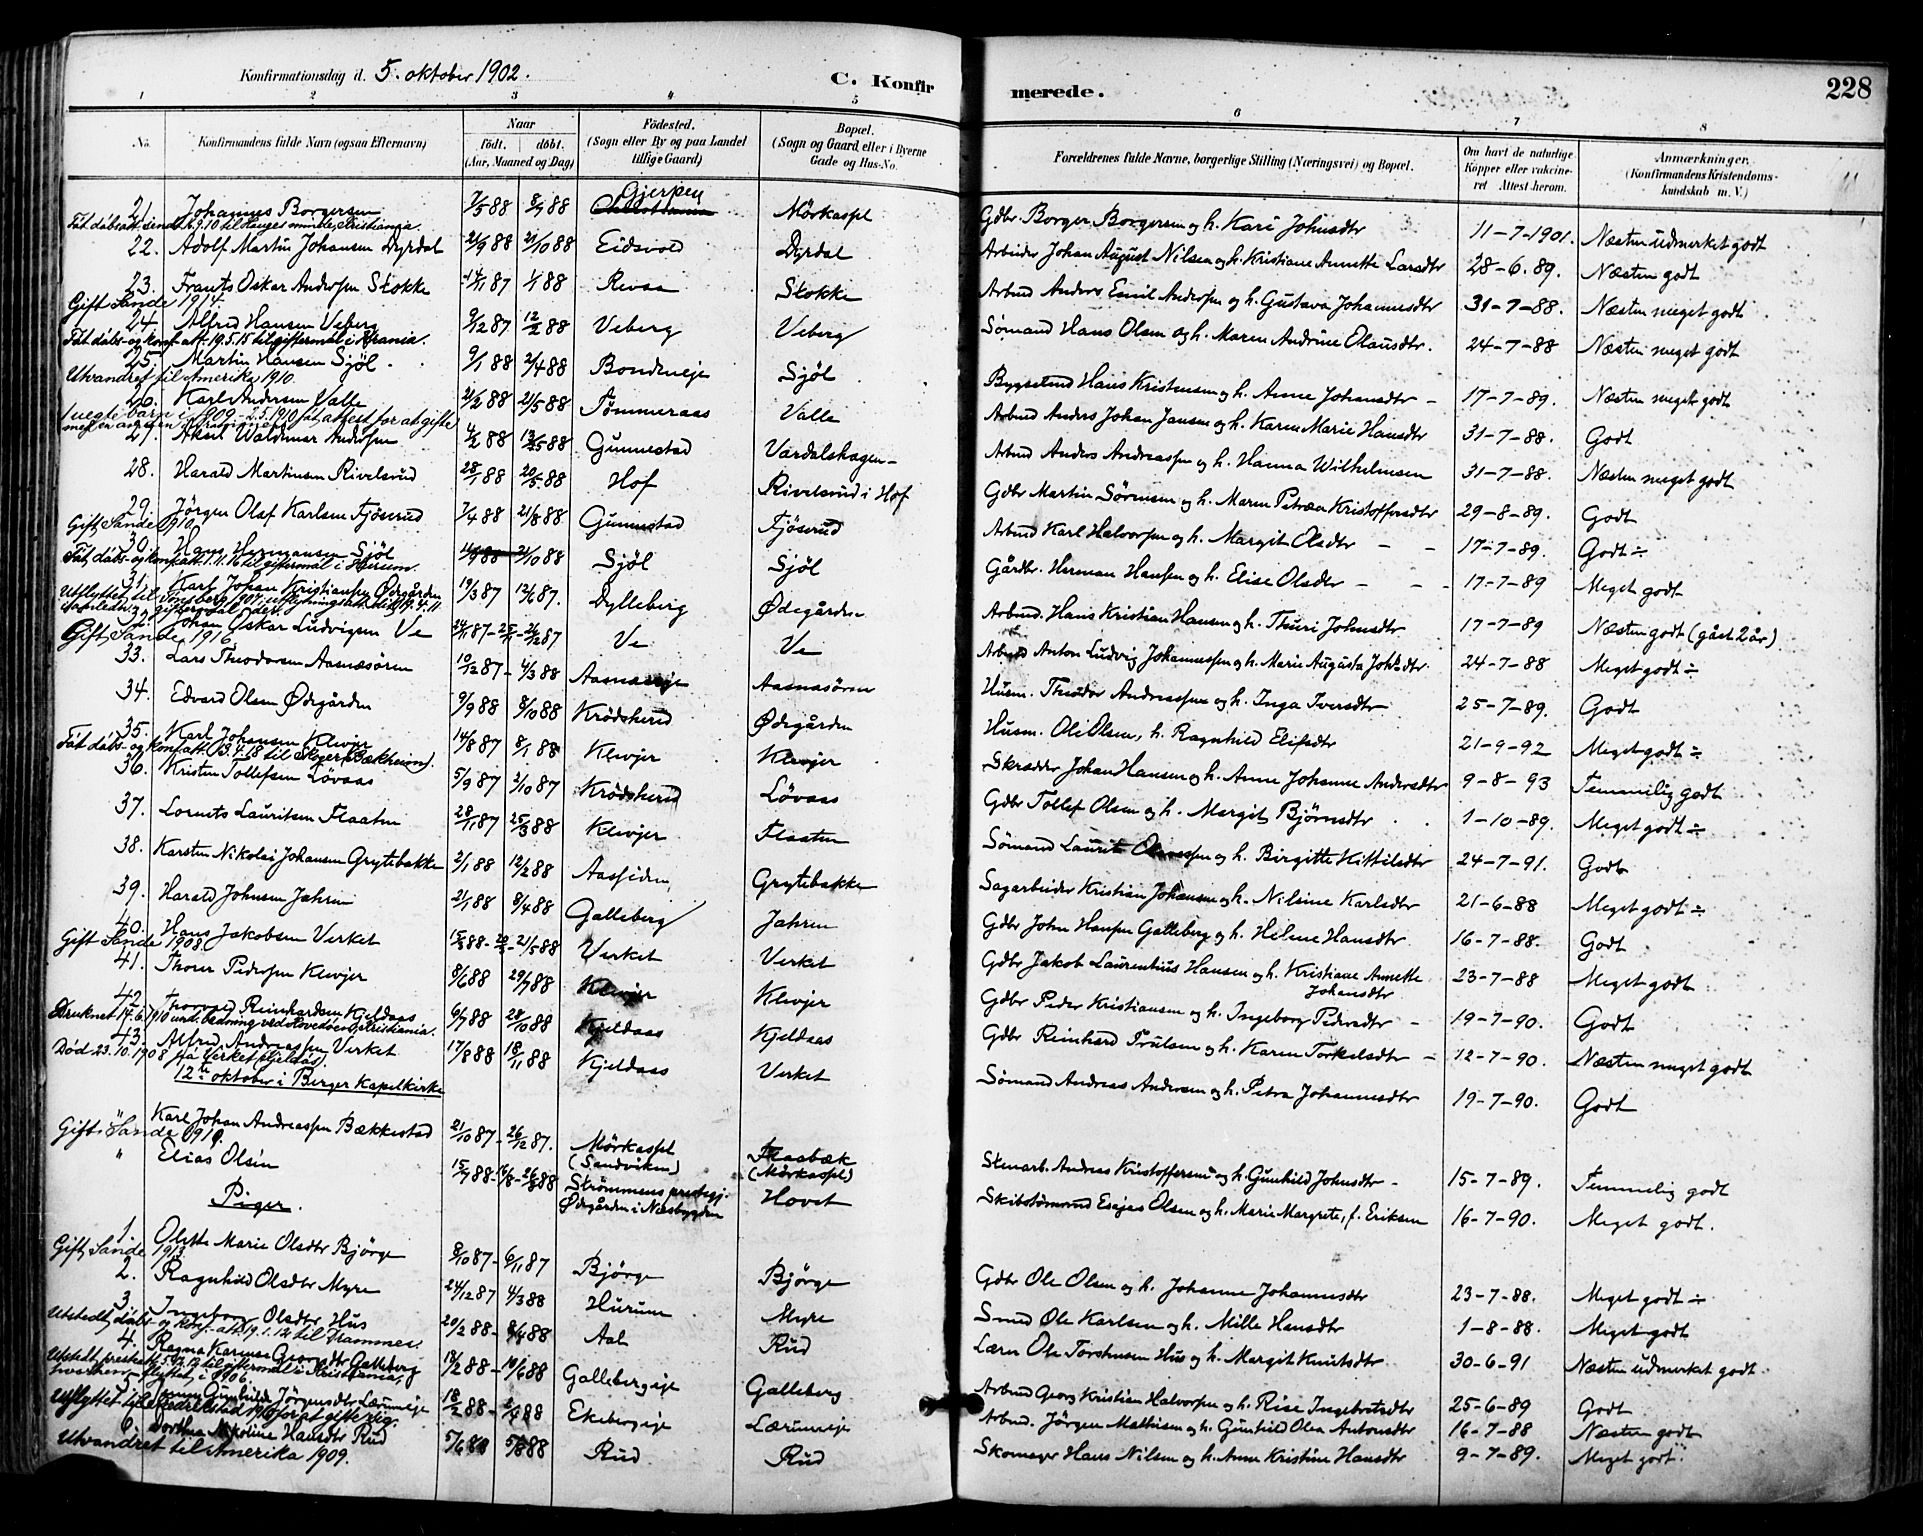 Konfirmationsdag d. 5. oktober 1902.
C. Konfir
merede.
228
1 2 3 4 5 6 7 8
No.
Konfirmandens fulde Navn (ogsaa Efternavn)
Naar
födt. döbt.
(Aar, Maaned og Dag)
Födested.
(Sogn eller By og paa Landet
tillige Gaard)
Bopæl.
(Sogn og Gaard, eller i Byerne
Gade og Hus-No.
Forældrenes fulde Navne, borgerlige Stilling (Næringsvei) og Bopæl.
Om havt de naturlige
Kopper eller vakcine-
ret Attest herom.
Anmærkninger.
(Konfirmandens Kristendoms-
kundskab m. V.)
21. Johannes Borgersen 7/5 88 8/7 88 Gjerpen Mörkassel Gdbr. Borger Borgersen og h. Kari Johnsdtr 11-7-1901. Næsten udmerket godt
22. Adolf Martin Johansen Dyrdal 2/9 88 21/10 88 Eidsvold Dyrdal Arbeider Johan August Nilsen og h. Kristiane Annette Larsdtr 28-6.89. Næsten godt
23. Frants Oskar Andersen Stokke 14/11 87 1/1 88 Revaa Stokke Arbmd Anders Emil Andersen og h. Gustava Johannesdtr 31-7-88. Næsten meget godt
Gift, Sande 1914.
24. Alfred Hansen Veberg 9/12 87 12/2 88 Veberg Veberg Sømand Hans Olsen og h. Maren Andrine Olausdtr. 24-7-88 Næsten meget godt
Fåt dåbs- og konf. att. 19.5.15 til giftermål i Krania.
25. Martin Hansen Sjöl 9/1 88 2/4 88 Bondeneje Sjöl Bygselmd Hans Kristensen og h. Anne Johansdtr 17-7-89. Næsten meget godt
Utvandret til Amerika 1910.
26. Karl Andersen Valle 21/2 88 21/5 88 Tömmeraas Valle Arbmd Anders Johan Jansen og h. Karen Marie Hansdtr 31-7-88. Godt
27. Aksel Waldemar Andersen 4/2 88 13/5 88 Gunnestad Vardalshagen Arbmd Anders Andreassen og h. Hanna Wilhelmsen 31-7-88. Næsten meget godt
28. Harald Martinsen Rivelsrud 28/1 88 20/5 88 Hof Rivelsrud i Hof Gdbr Martin Sörensen og h. Maren Petrea Kristoffersdtr 29-8-89. Godt
29. Jörgen Olaf Karlsen Fjöserud 7/4 88 21/8 88 Gunnestad Fjöserud Arbmd Karl Halvorsen og h. Margit Olsdtr 17-7-89. Godt ÷
Gift, Sande 1910.
30. Hans Hermansen Sjöl 21/10 88 Sjöl Sjöl Gårdbr. Herman Hansen og h. Elise Olsdtr 17-7-89 Meget godt
31. Karl Johan Kristiansen Ødegården 19/3 87 12/6 87. Dylleberg Ødegården Arbmd. Hans Kristian Hansen og h. Thuri Johnsdtr 17-7-89 Næsten godt (gåst 2 år)
32. Johan Oskar Ludvigsen Ve Ve Ve Arbmd Anton Ludvig Johannessen og h. Marie Augusta Johsdtr. 24-7-88 Meget godt ÷
Gift Sande 1916
33. Lars Theodorsen Aasnæsören 10/12 87 4/3 88 Aasnæseje Aasnæsören Husm. Theodor Andreassen og h. Inga Iversdtr 25-7-89. Godt
34. Edvard Olsen Ødegården 9/9 88 8/10 88 Krödsherred Ødegården Husm. Ole Olsen, h. Ragnhild Elefsdtr 21-9-92 Meget godt ÷
35. Karl Johansen Klevjer 14/8 87 8/1 88 Klevjer Klevjer Skrædder Johan Hansen og h. Anne Johanne Andersdtr 9-8-93 Temmelig godt
Fåt dåbs- og konf. att. 13.4.18 til Skoger (Bækheim).
36. Kristen Tollefsen Lövaas 5/9 87 2/10 87 Krödsherred Lövaas Gdbr Tollef Olsen og h. Margit Björnsdtr 1-10-89. Meget godt ÷
37. Lornts Lauritsen Flaaten 28/11 87 25/3 88 Klevjer Flaaten Sömand Laurit og h. Birgitte Kittilsdtr 24-7-91. Godt
38. Karsten Nikolai Johansen Grytebakke 2/1 88 12/2 88 Aassiden Grytebakke Sagarbeider Kristian Johansen og h. Nilsine Karlsdtr 21-6-88 Meget godt ÷
39. Harald Johnsen Jahren 21/1 88 8/4 88 Galleberg Jahren Gdbr John Hansen Galleberg og h. Helene Hansdtr 16-7-88. Godt
40. Hans Jakobsen Verket 21/5 88 Verket Verket Gdbr Jakob Laurentius Hansen og h. Kristiane Annette Johansdtr 23-7-88 Meget godt
Gift Sande 1908
41. Thorer Pedersen Klevjer 8/6 88 29/7 88 Klevjer Klevjer Gdbr Peder Kristiansen og h. Ingeborg Pedersdtr 19-7-90. Godt
42. Thorvald Reinhardsen Kjeldaas 6/7 88 28/10 88 Kjeldaas Kjeldaas Gdbr Reinhard Trulsen og h. Karen Torkelsdtr 12-7-90. Næsten meget godt
Druknet 17.6.1910 und. badning ved Hovedöen, Kristiania.
43. Alfred Andreassen Verket 17/8 88 18/11 88 Kjeldaas Verket Sömand Andreas Andersen og h. Petra Johannesdtr 19-7-90. Godt
Död 23.10.1908 på Verket
12te oktober i Berger Kapelkirke
" Karl Johan Andreassen Bækkestad 21/10 87 26/12 87. Mörkassel (Sandviken) Flasbæk (Mörkassel) Stenarb. Andreas Kristoffersen og h. Gunhild Johnsdtr 15-7-89. Temmelig godt
Gift, Sande 1919.
" Elias Olsen 15/7 88 26/8 88 Strömmens prestegj. Ødegården i Næsbygden Hovet Skibstömmermd Esajas Olsen og h. Marie Margrete, f. Eriksen 16-7-90. Meget godt.
Piger.
1. Olette Marie Olsdtr Björge 8/10 87 6/11 87 Björge Björge Gdbr Ole Olsen og h. Johanne Johannesdtr 23-7-88. Meget godt ÷
Gift, Sande 1913.
2. Ragnhild Olsdtr Myre 24/12 87 4/3 88 Hurum Myre Smed Ole Karlsen og h. Mille Hansdtr 1-8-88. Meget godt
3. Ingeborg Olsdtr Hus 20/2 88 8/4 88 Aal Rud Lærer Ole Torstensen Hus og h. Margit Knutsdtr 30-6-91 Næsten udmerket godt
Utstedt dåbs- og konf.-att. 19.1.12 til Drammen.
4. Ragna Karense Georgsdtr Galleberg 18/2 88 10/6 88 Gallebergeje Galleberg Arbmd Georg Kristian Halvorsen og h. Rise Ingebretsdtr 25-6-89 Godt
5. Gunhilda Jörgensdtr Lærumeje 18/2 88 Ekebergeje Lærumeje Arbmd. Jörgen Mathisen og h. Gunhild Olea Antonsdtr 16-7-88 Næsten godt
6. Dorthea Nikoline Hansdtr Rud 5/6 88 5/8 88 Rud Rud Skomager Hans Nilsen og h. Anne Kristine Hansdtr 9-7-89. Meget godt
Utvandret til Amerika 1909.